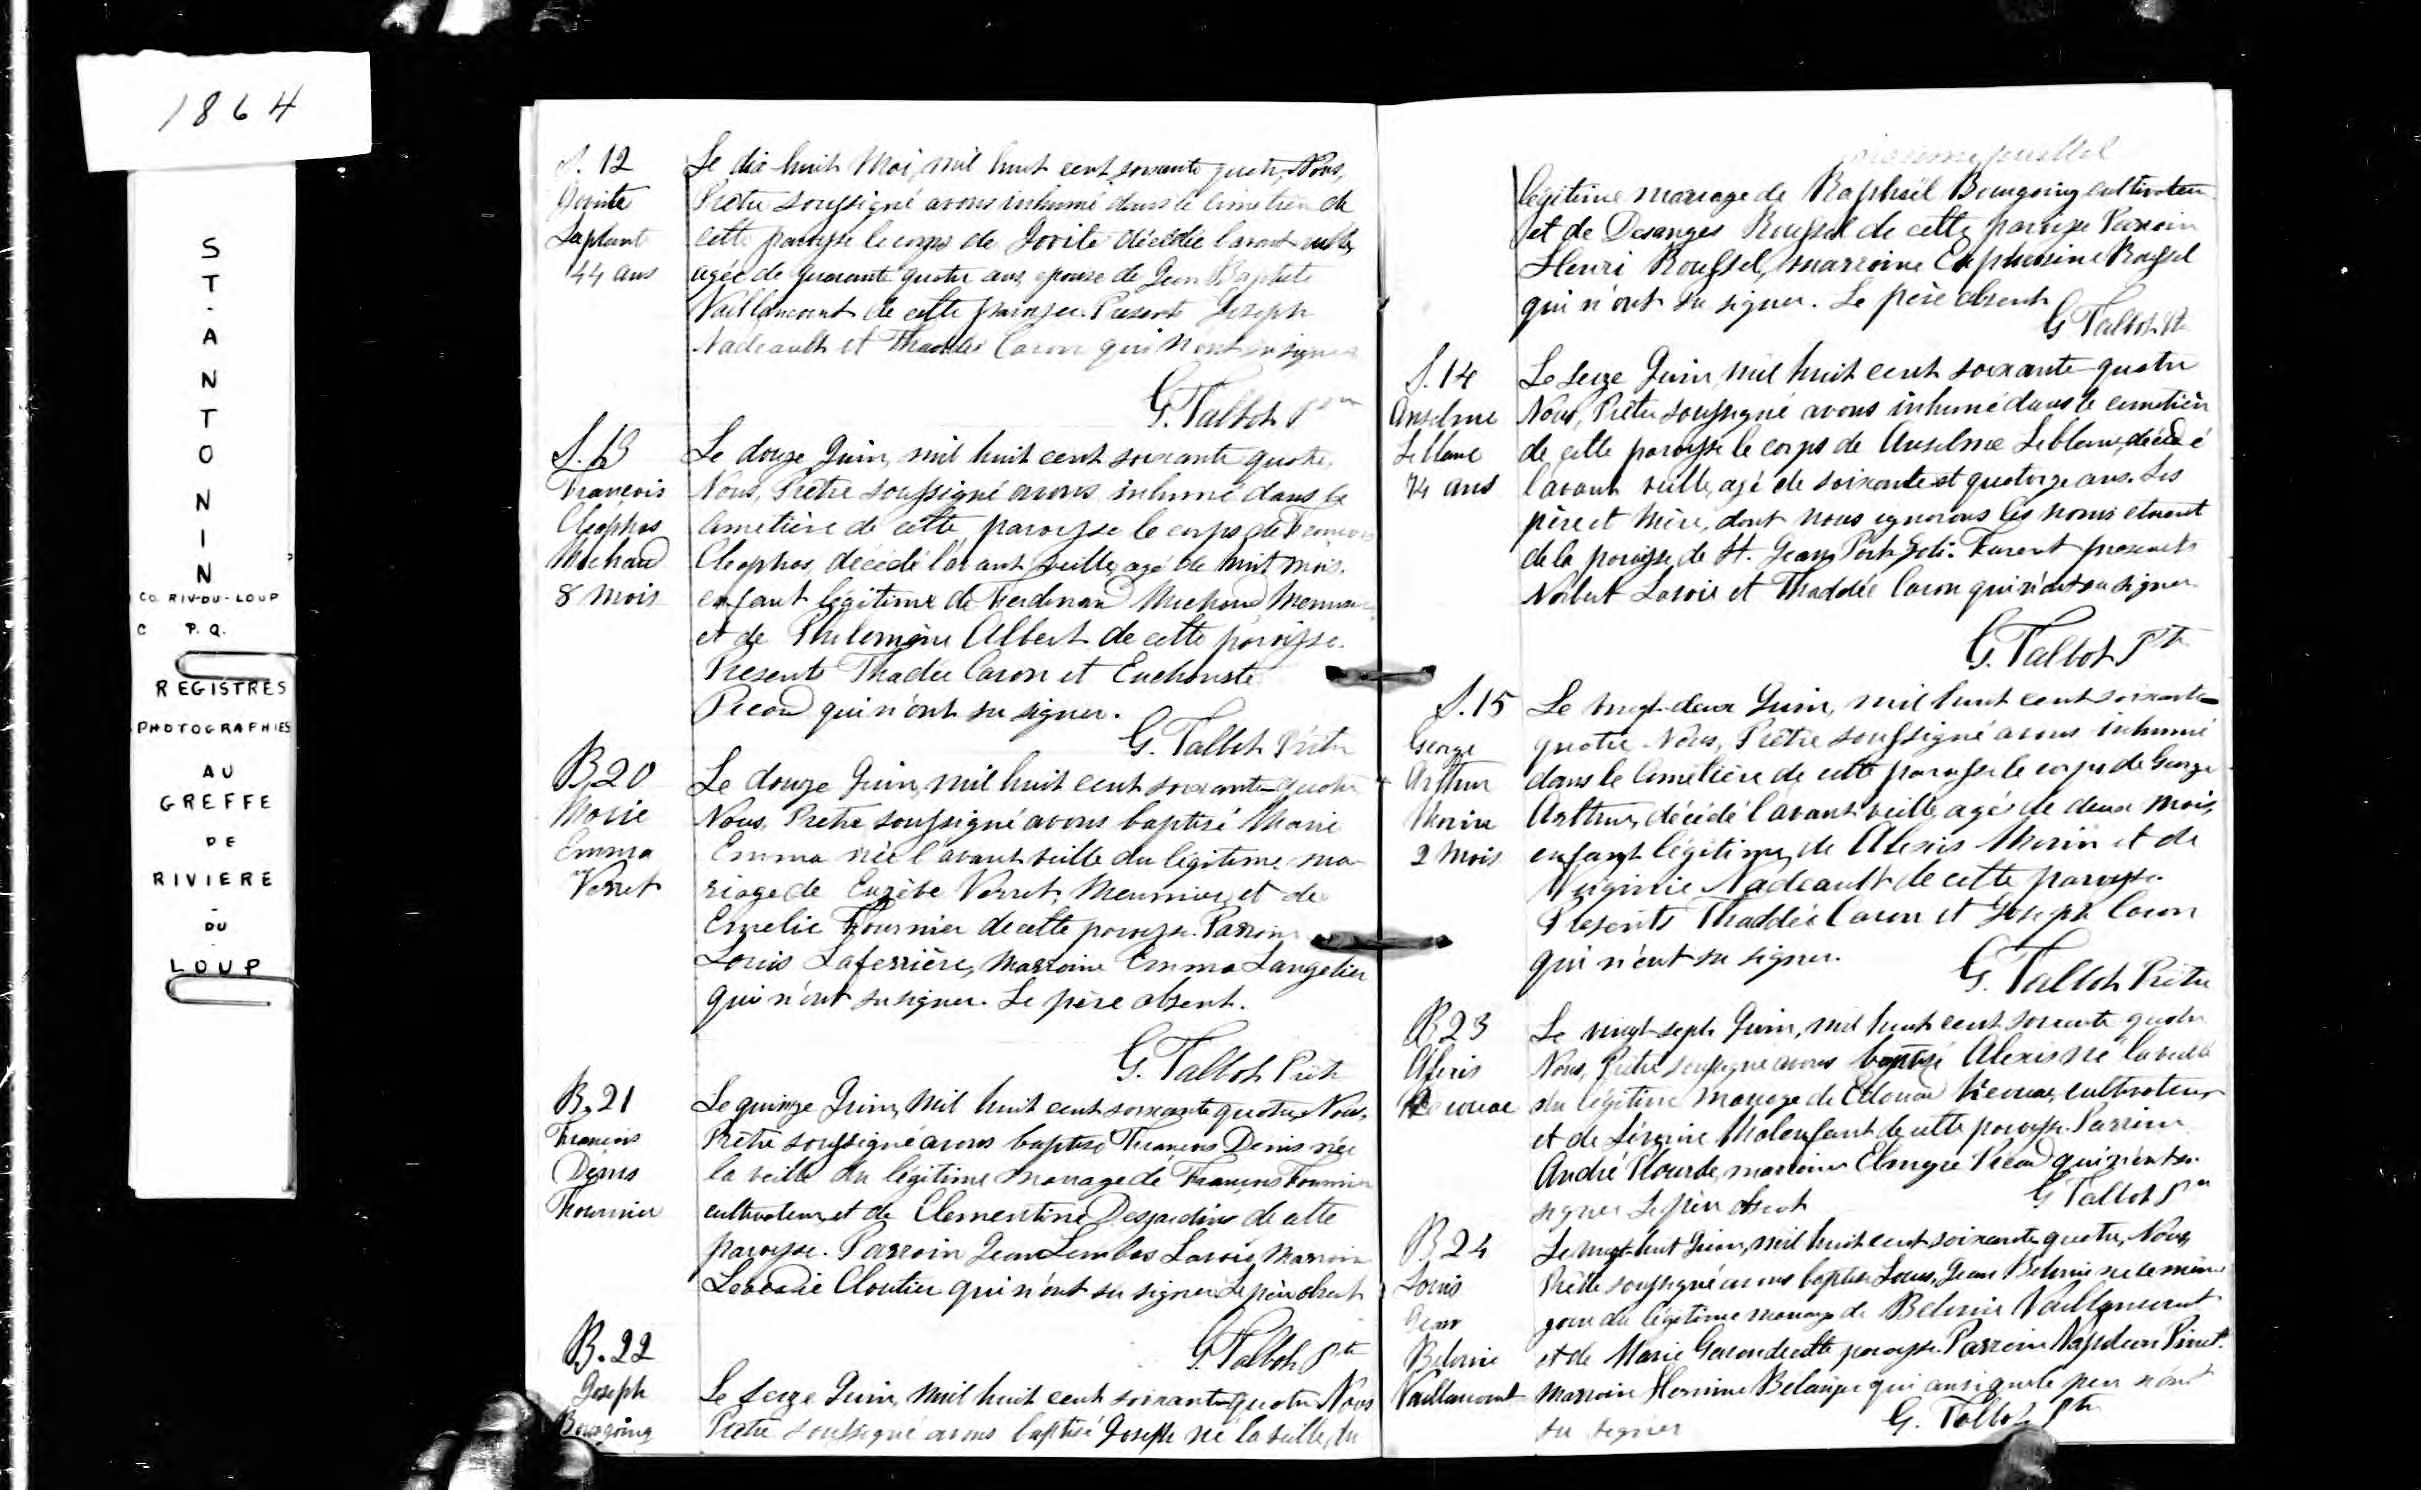 1864
ST-ANTONIN
CO. RIV-DU-LOUP
C P.Q.
REGISTRES
PHOTOGRAPHIES
AU
GREFFE
DE
RIVIERE
-
DU
LOUP
S. 12
Jovite
Laplante
44 ans
Le dix huit Mai, mil huit cent soixante quatre, Nous,
Prêtre soussigné avons inhumé dans le cimetière de
cette paroisse le corps de Jovite décédée l'avant veille,
agée de quarante quatre ans, epouse de Jean Baptiste
Vaillancourt de cette paroisse. Présents Joseph
Nadeault et Thaddée Caron qui n'ont su signer
G. Talbot Ptre
S. 13
Francois
Cleophas
Michaud
8 mois
Le douze Juin, mil huit cent soixante quatre,
Nous, Prêtre soussigné avons inhumé dans le
Cimetière de cette paroisse le corps de Francois
Cleophas, décédé l'avant veille, agé de huit mois.
enfant légitime de Ferdinand Michaud Menuisier
et de Philomène Albert de cette paroisse.
Présents Thadée Caron et Euchariste
Picard qui n'ont su signer.
G. Talbot Prêtre
B. 20
Marie
Emma
Verret
Le douze Juin, mil huit cent soixante-quatre
Nous, Prêtre soussigné avons baptisé Marie
Emma née l'avant veille du légitime ma
riage de Euzèbe Verret, Meunier, et de
Emelie Fournier de cette paroisse. Parrain
Louis Laferrière, Marraine Emma Langelier
qui n'ont su signer. Le père absent.
G. Talbot Prêtre
B. 21
Francois
Denis
Fournier
Le quinze Juin, mil huit cent soixante quatre, Nous,
Prêtre soussigné avons baptisé Francois Denis née
la veille du légitime mariage de Francois Fournier
cultivateur, et de Clementine Desjardins de cette
paroisse. Parrain Jean Lavoie, Marraine
Leocadie Cloutier qui n'ont su signer. Le père absent
G. Talbot Ptre
B. 22
Joseph
Bourgoing
Le seize Juin, mil huit cent soixante-quatre Nous
Prêtre soussigné avons baptisé Joseph né la veille, du
légitime mariage de Raphaël Bourgoing cultivateur
et de Desanges Roussel de cette paroisse Parrain
Henri Roussel, marraine Euphrosine Roussel
qui n'ont su signer. Le père absent
G Talbot Ptre
S. 14
Anselme
Leblanc
74 ans
Le seize Juin, mil huit cent soixante-quatre
Nous, Prêtre soussigné avons inhumé dans le cimetière
de cette paroisse le corps de Anselme Leblanc, décédé
l'avant veille, agé de soixante et quatorze ans. Les
père et mère, dont nous ignorons les noms etaient
de la paroisse de St. Jean Port Joli. Furent présents
Norbert Lavoie et Thaddée Caron qui n'ont su signer
G. Talbot Ptre
S. 15
George
Arthur
Morin
2 Mois
Le vingt-deux Juin, mil huit cent soixante
quatre Nous, Prêtre soussigné avons inhumé
dans le Cimetière de cette paroisse le corps de George
Arthur, décédé l'avant veille, agé de deux mois,
enfant légitime de Alexis Morin et de
Virginie Nadeault de cette paroisse.
Présents Thaddée Caron et Joseph Caron
qui n'ont su signer.
G. Talbot Prêtre
B. 23
Alexis
Le vingt-sept Juin, mil huit cent soixante quatre
Nous, Prêtre soussigné avons baptisé Alexis né la veille
du légitime mariage de Edouard cultivateur
et de Séverine Malenfant de cette paroisse. Parrain
André Plourde, marraine Elmyre Picard qui n'ont su
signer Le père absent
G Talbot Ptre
B. 24
Louis
Jean
Belonie
Vaillancourt
Le vingt-huit Juin, mil huit cent soixante quatre, Nous,
Prêtre soussigné avons baptisé Louis, Jean Belonie né le même
jour du légitime mariage de Belonie Vaillancourt
et de Marie de cette paroisse. Parrain Napoleon Pinet
Marraine Hermine Belanger qui ainsi que le père n'ont
su signer
G. Talbot Ptre